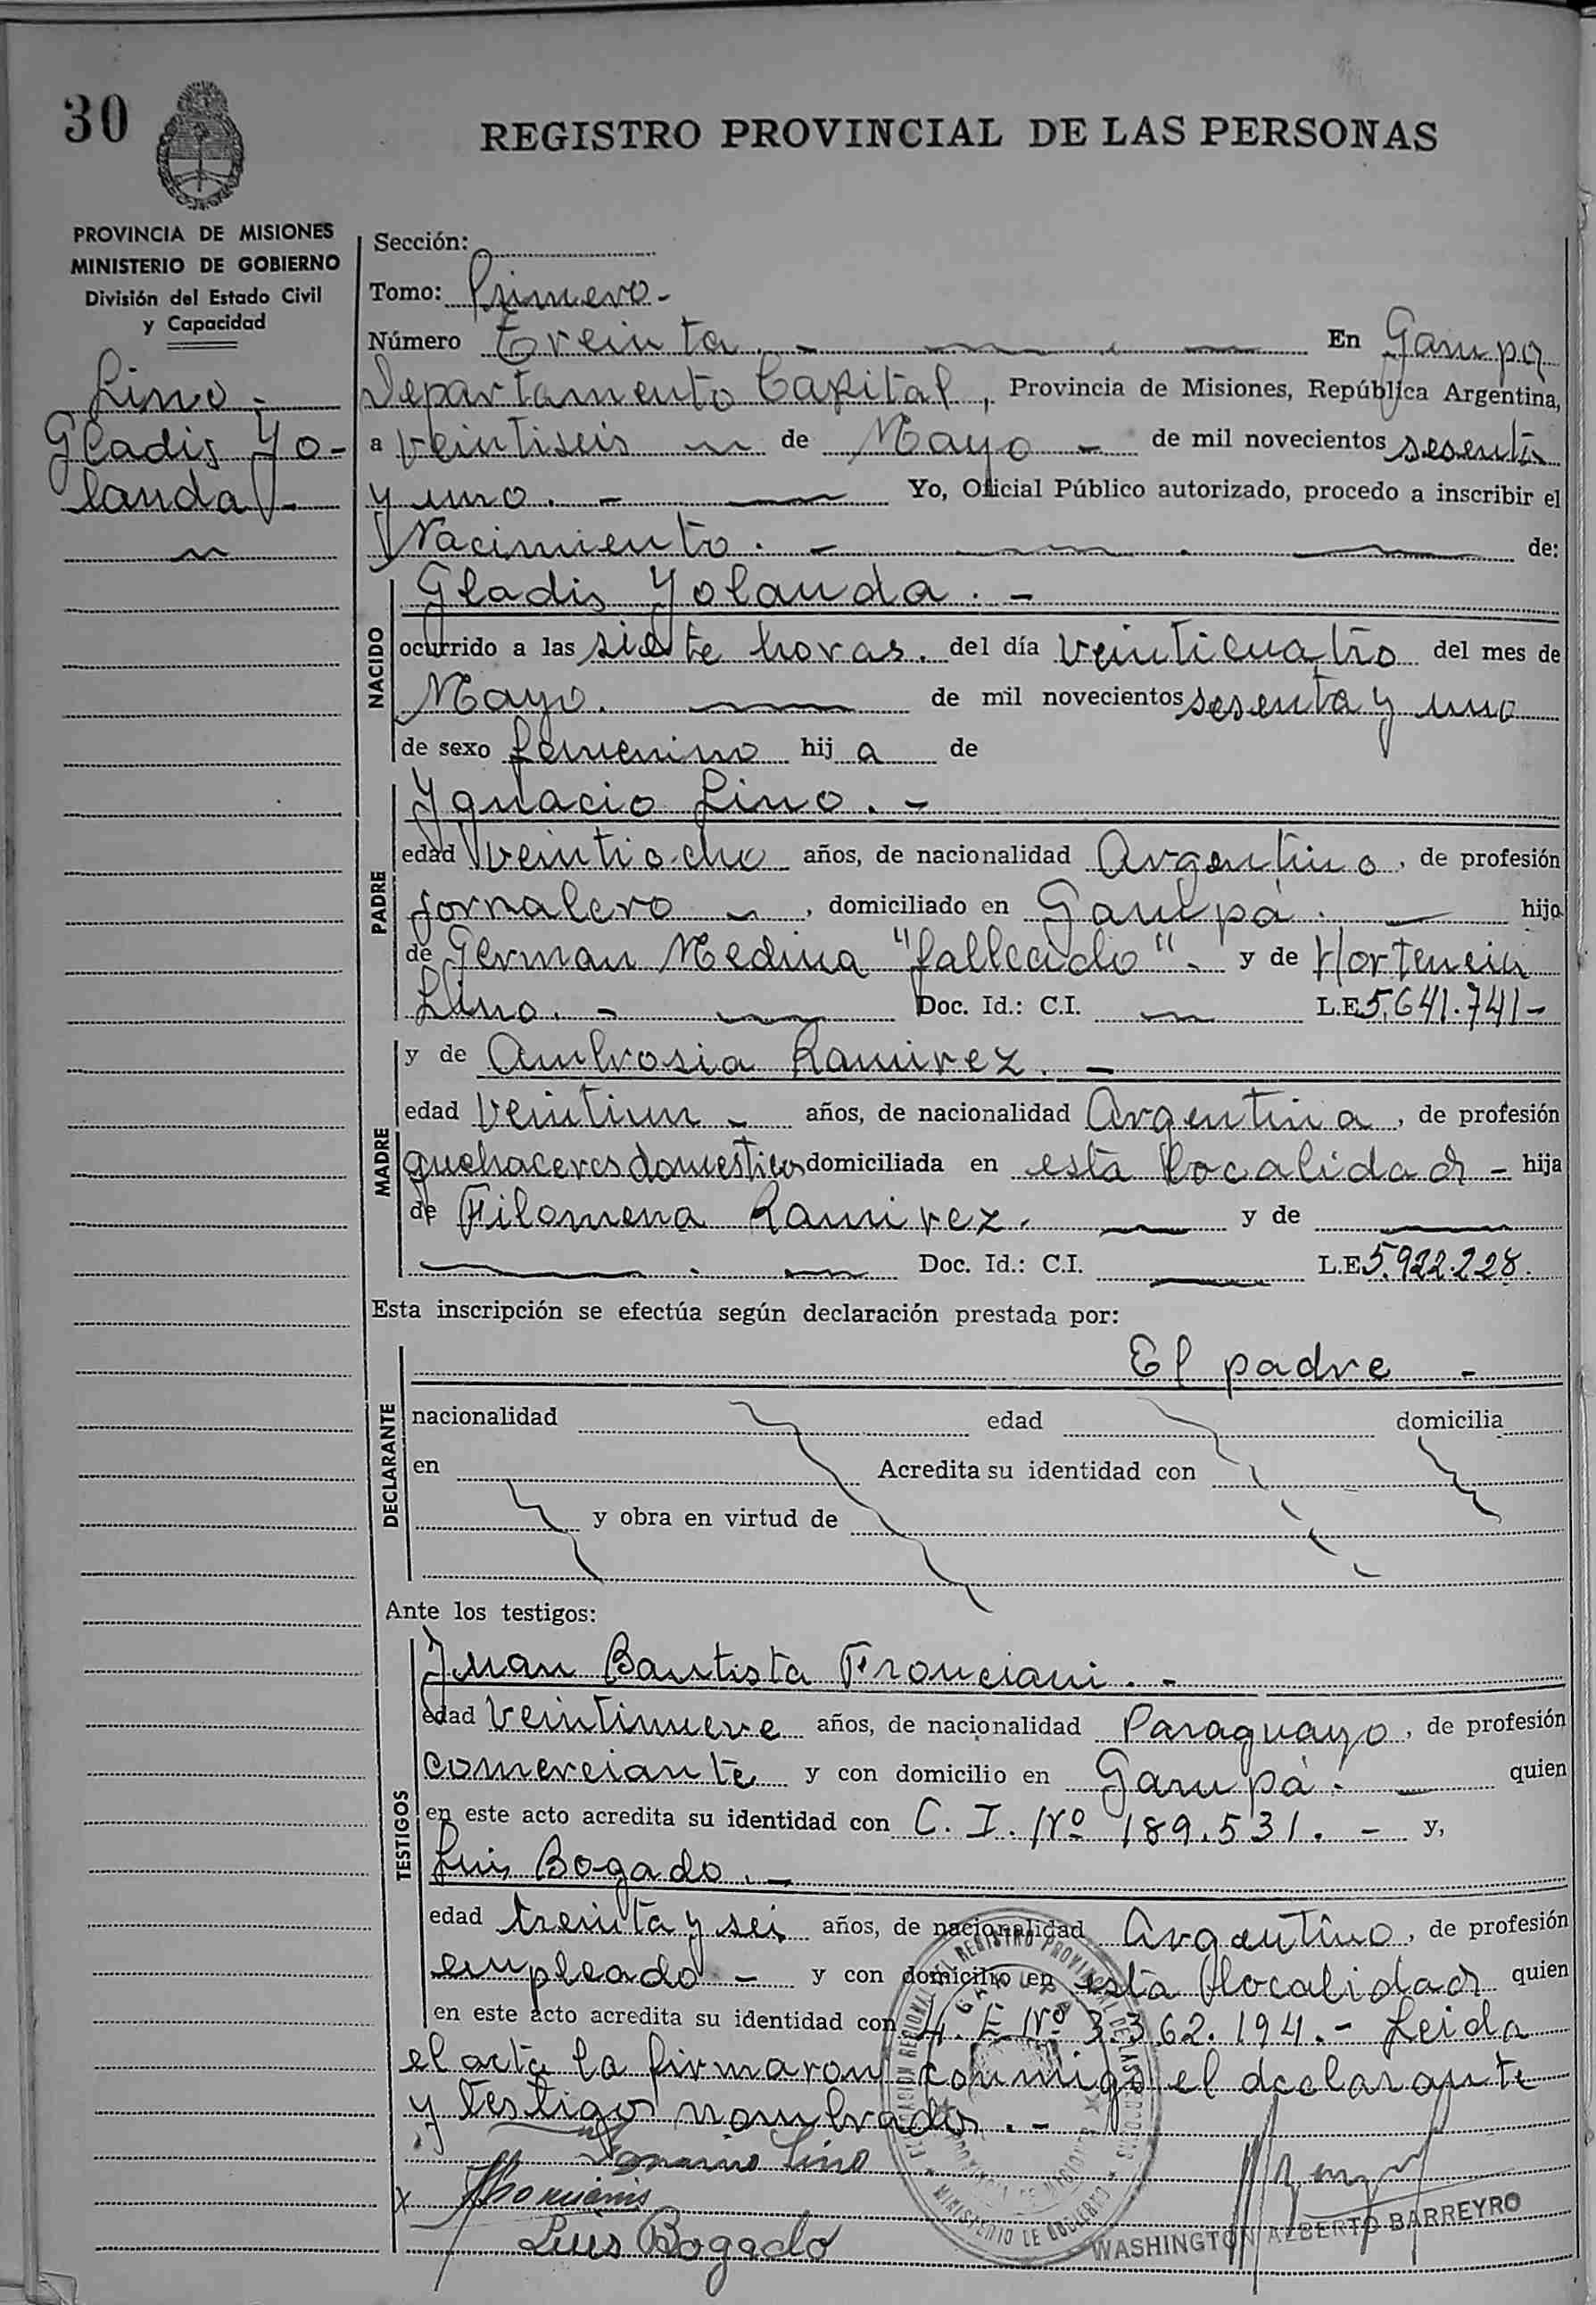 30
REGISTRO PROVINCIAL DE LAS PERSONAS
PROVINCIA DE MISIONES
MINISTERIO DE GOBIERNO
División del Estado Civil
y Capacidad
Lino -
Gladis Yo-
landa -
Sección:
Tomo: Primero -
Número Treinta . - En Garupá
Departamento Capital , Provincia de Misiones, República Argentina,
a veintiseis de Mayo - de mil novecientos sesenta
y uno . - Yo, Oficial Público autorizado, procedo a inscribir el
Nacimiento . - de:
NACIDO
Gladis Yolanda . -
ocurrido a las siete horas . del día veinticuatro del mes de
Mayo . de mil novecientos sesenta y uno
de sexo femenino hij a de
PADRE
Ygnacio Lino . -
edad veintiocho años, de nacionalidad Argentino , de profesión
jornalero , domiciliado en Garupá . hijo
de German Medina "fallecido" - y de Hortencia
Lino . - Doc. Id.: C.I. L.E 5.641.741 -
MADRE
y de Ambrosia Ramirez . -
edad veintiun - años, de nacionalidad Argentina , de profesión
quehaceres domesticos domiciliada en esta localidad - hija
de Filomena Ramirez . y de
Doc. Id.: C.I. L.E 5.922.228.
Esta inscripción se efectúa según declaración prestada por:
DECLARANTE
El padre -
nacionalidad edad domicilia
en Acredita su identidad con
y obra en virtud de
Ante los testigos:
TESTIGOS
Juan Bautista Fronciani . -
edad veintinueve años, de nacionalidad Paraguayo , de profesión
comerciante y con domicilio en Garupá . quien
en este acto acredita su identidad con C. I. Nº 189.531. - y,
Luis Bogado . -
edad treinta y seis años, de nacionalidad Argentino , de profesión
empleado - y con domicilio en esta localidad quien
en este acto acredita su identidad con L. E Nº 3.362.194. - Leida
el acta la firmaron conmigo el declarante
y testigos nombrados . -
Ignacio Lino
Luis Bogado
WASHINGTON ALBERTO BARREYRO